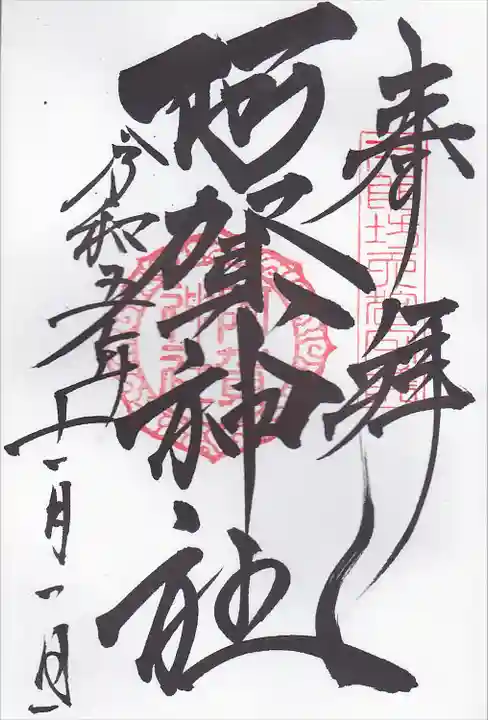 奉拝
阿賀神社
令和五年十一月一日